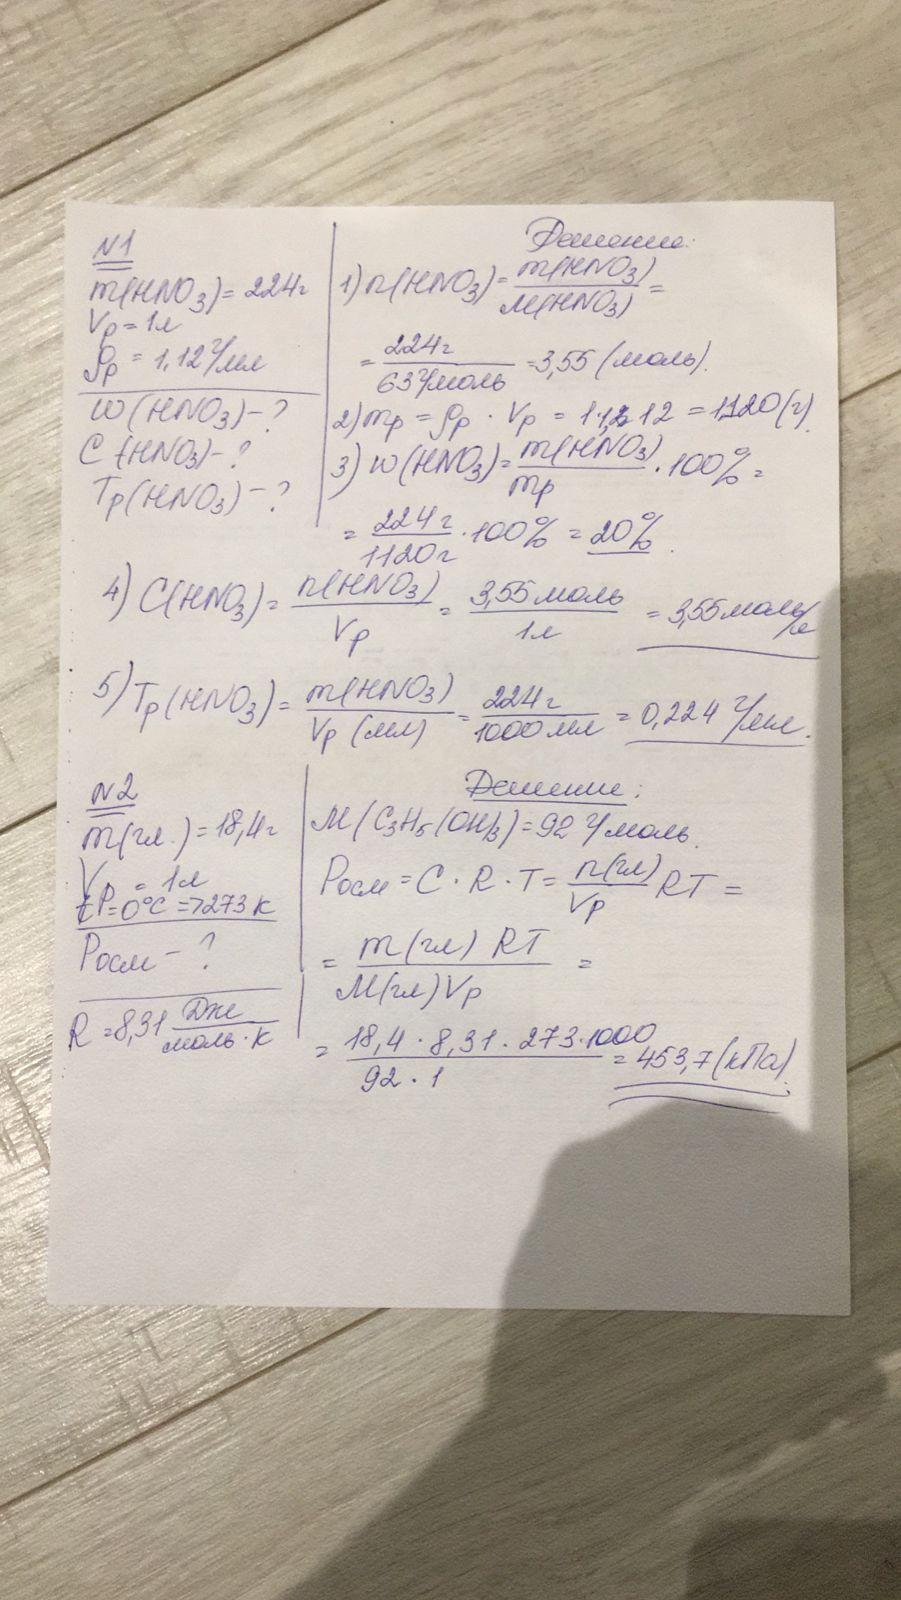 N1
m(HNO3) = 224г
Vp = 1л
ρp = 1,12 г/мл
ω (HNO3) - ?
C (HNO3) - ?
Tp (HNO3) - ?
Решение:
1) n(HNO3) = m(HNO3) / M(HNO3) =
= 224г / 63 г/моль = 3,55 (моль).
2) mp = ρp · Vp = = 1120 (г).
3) ω(HNO3) = m(HNO3) / mp · 100% =
= 224г / 1120г · 100% = 20%.
4) C(HNO3) = n(HNO3) / Vp = 3,55 моль / 1л = 3,55 моль/л
5) Tp (HNO3) = m(HNO3) / Vp (мл) = 224г / 1000 мл = 0,224 г/мл.
N2
m(гл.) = 18,4г
Vp = 1л
t = 0°C => 273 К
Pосм - ?
R = 8,31 Дж / моль · К
Решение:
M(C3H5(OH)3) = 92 г/моль.
Pосм = C · R · T = n(гл) / Vp RT =
= m(гл) RT / M(гл) Vp =
= 18,4 · 8,31 · 273 · 1000 / 92 · 1 = 453,7 (кПа).